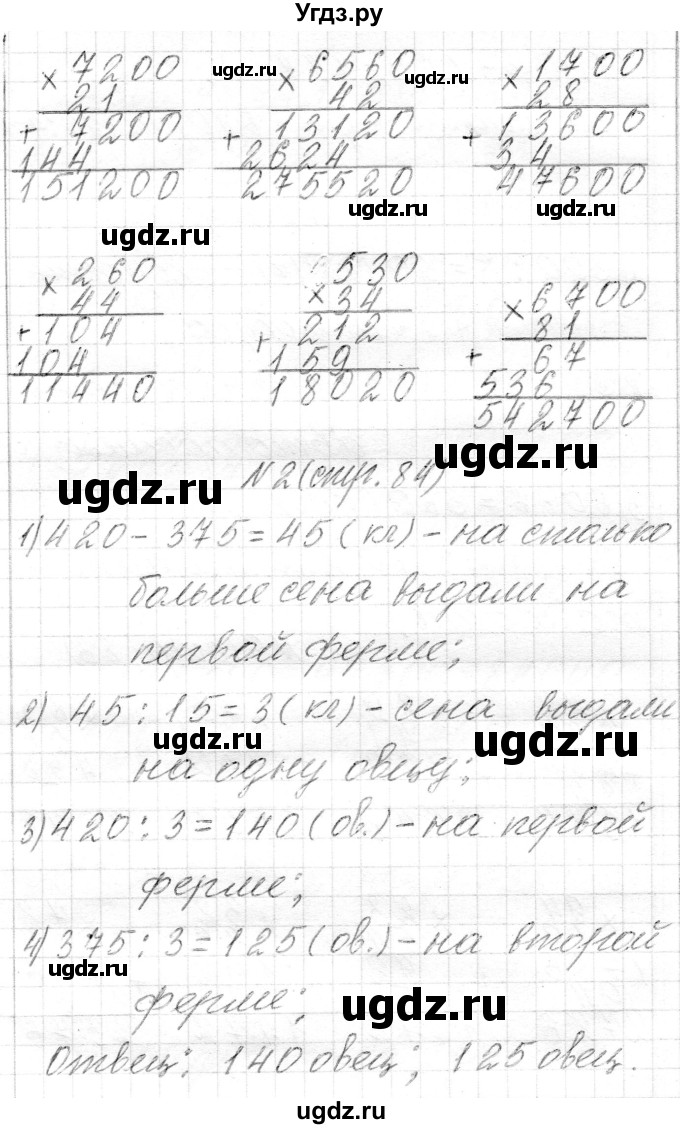 Угдз.ру
× 7200
21
+ 7200
144
151200
ugdz.ru
× 6560
42
+ 13120
2624
275520
ugdz.ru
× 1700
28
+ 13600
34
47600
ugdz.ru
ugdz.ru
ugdz.ru
× 260
44
+ 104
104
11440
530
× 34
+ 212
159
18020
× 6700
81
+ 67
536
542700
ugdz.ru
ugdz.ru
N2 (стр. 84)
1) 420 - 375 = 45 (кг) - на столько
больше сена выдали на
первой ферме;
2) 45 : 15 = 3 (кг) - сена выдали
ugdz.ru
ugdz.ru
на одну овцу;
3) 420 : 3 = 140 (ов.) - на первой
ферме;
4) 375 : 3 = 125 (ов.) - на второй
ugdz.ru
ферме;
ugdz.ru
Отвец: 140 овец; 125 овец.
ugdz.ru